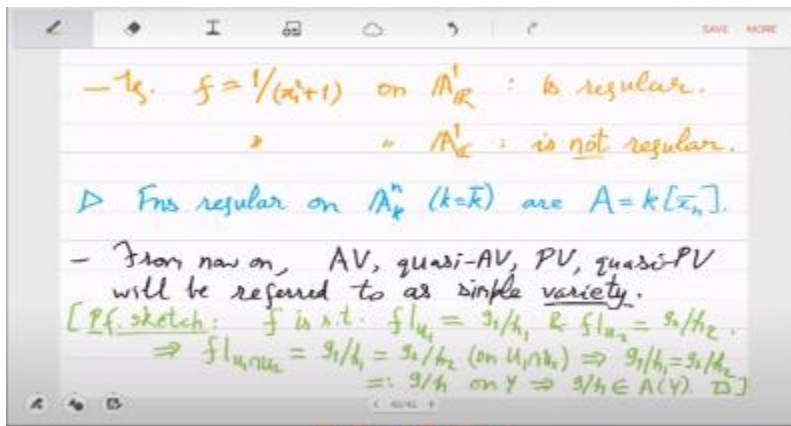 SAVE MORE
- Eg. f = 1/(x₁²+1) on A¹_ℝ : is regular.
" " A¹_ℂ : is not regular.
▷ Fns regular on Aⁿ_k (k=k̄) are A = k[x̄_n].
- From now on, AV, quasi-AV, PV, quasi-PV
will be referred to as simple variety.
[Pf. sketch: f is s.t. f|_{U₁} = g₁/h₁ & f|_{U₂} = g₂/h₂.
⇒ f|_{U₁∩U₂} = g₁/h₁ = g₂/h₂ (on U₁∩U₂) ⇒ g₁/h₁ = g₂/h₂
=: g/h on Y ⇒ g/h ∈ A(Y). □]